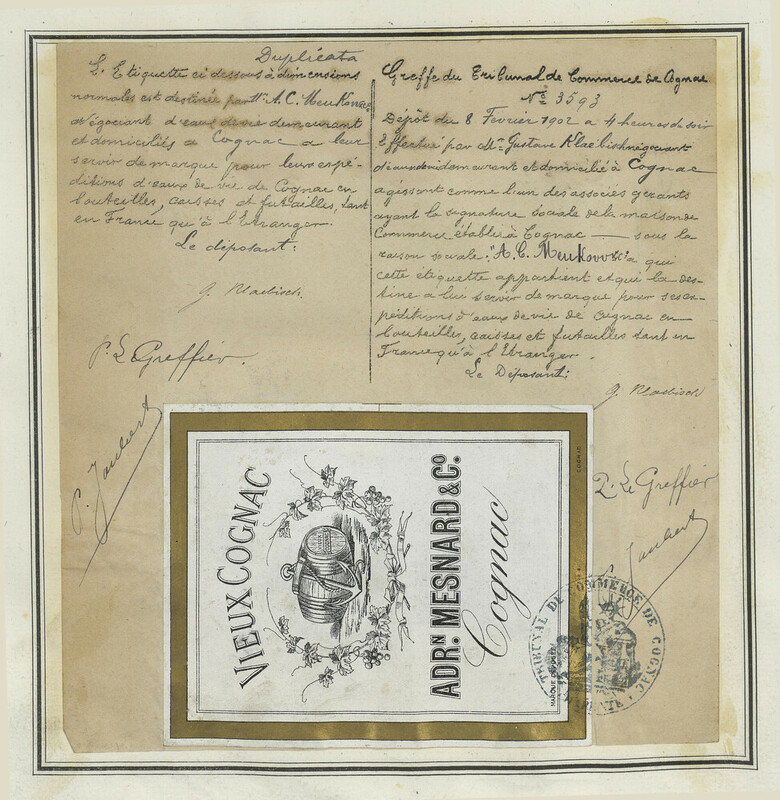 Duplicata
L'Etiquette ci dessous à dimensions
normales est destinée par Mr. A. C. Meukow &
négociant d'eaux de vie demeurant
et domiciliés à Cognac a leur
servir de marque pour leurs expé-
ditions d'eaux de vie de Cognac en
bouteilles, caisses et futailles, tant
en France qu'à l'Etranger.
Le déposant:
G. Klaebisch
P. Le Greffier.
P. Joubert
Greffe du Tribunal de Commerce de Cognac
No 3593
Dépôt du 8 Février 1902 a 4 heures du soir
Effectué par Mr. Gustave Klaebisch négociant
d'eaux de vie demeurant et domicilié à Cognac
agissant comme l'un des associés gerants
ayant la signature sociale de la maison de
Commerce établie à Cognac — sous la
raison sociale: "A. C. Meukow &" a qui
cette étiquette appartient et qui la des-
tine a lui servir de marque pour ses ex-
péditions d'eaux de vie de Cognac en
bouteilles, caisses et futailles tant en
France qu'à l'Etranger.
Le Déposant:
G. Klaebisch
P. Le Greffier
Joubert
VIEUX COGNAC
ADRN. MESNARD & CO.
Cognac
MARQUE DEPOSÉE
COGNAC
TRIBUNAL DE COMMERCE DE COGNAC